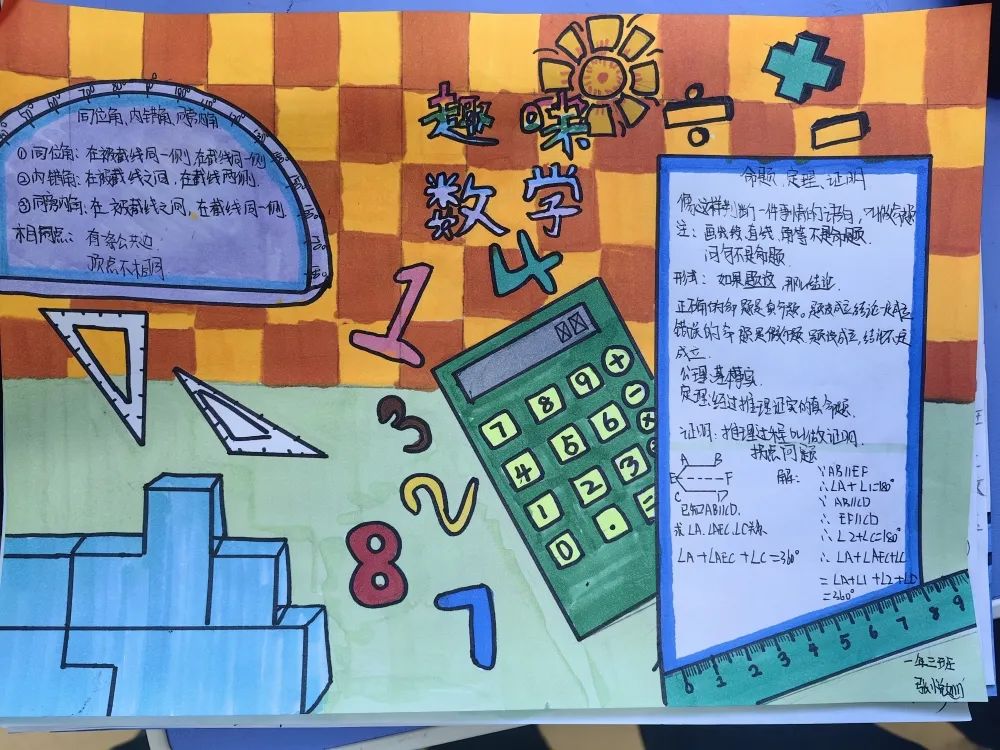 趣味
数学
同位角,内错角,同旁内角
①同位角:在被截线同一侧,在截线同一侧
②内错角:在被截线之间,在截线两侧.
③同旁内角:在被截线之间,在截线同一侧.
相同点: 有一条公共边
顶点不相同
命题、定理、证明
像这样判断一件事情的语句,叫做命题
注: 画线段,直线,角等不是命题.
问句不是命题.
形式: 如果题设,那么结论
正确的命题是真命题,题设成立,结论一定成立
错误的命题是假命题,题设成立,结论不一定
成立.
公理:基本事实.
定理:经过推理证实的真命题.
证明:推理过程叫做证明.
拐点问题
A B
E F
C D
已知AB∥CD.
求∠A.∠AEC.∠C关系.
∠A+∠AEC+∠C=360°
解: ∵AB∥EF
∴∠A+∠1=180°
∵AB∥CD
∴EF∥CD
∴∠2+∠C=180°
∴∠A+∠AEC+∠C
=∠A+∠1+∠2+∠C
=360°
1
4
3
2
8
7
7 8 9 +
4 5 6 -
1 2 3
0 . =
0 1 2 3 4 5 6 7 8 9
一年三班